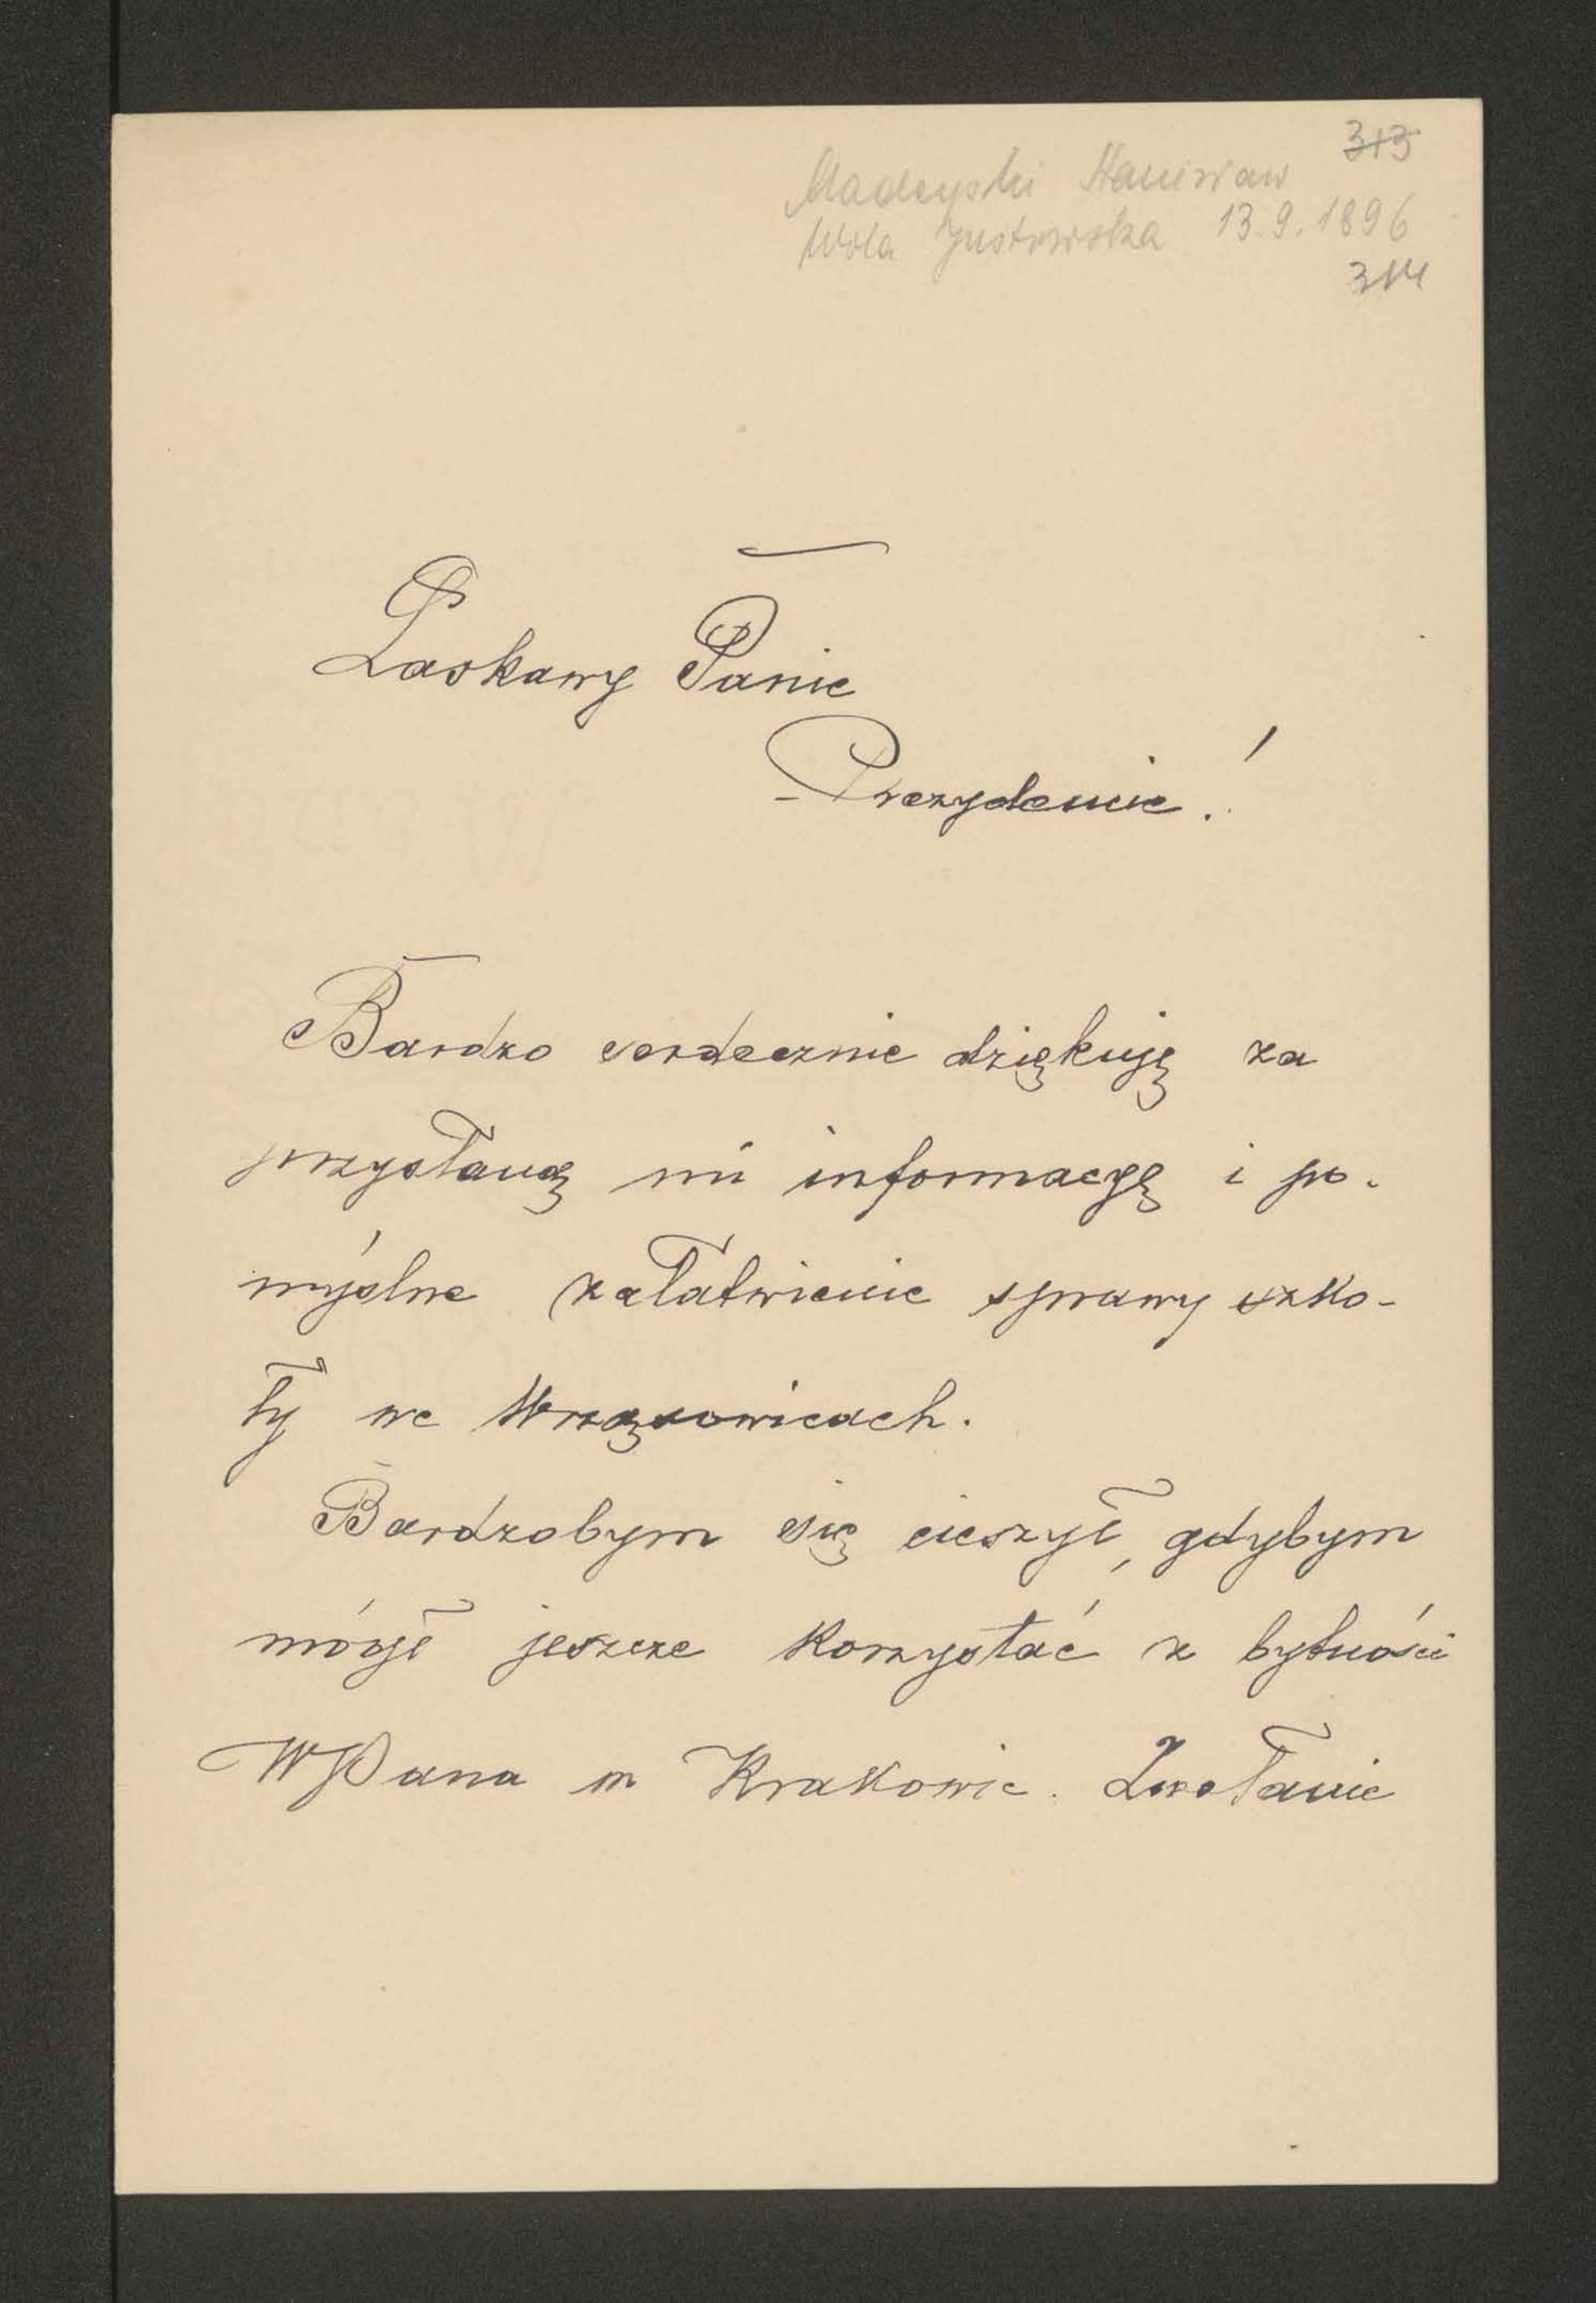 313
Madeyski Stanisław
Wola Justowska 13.9.1896
314
Łaskawy Panie
Prezydencie!
Bardzo serdecznie dziękuję za
przysłaną mi informacyę i po-
myślne załatwienie sprawy szko-
ły we Wrząsowicach.
Bardzobym się cieszył, gdybym
mógł jeszcze korzystać z bytności
WPana w Krakowie. Zwołanie